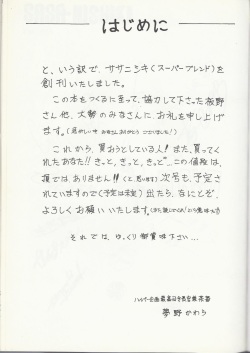 はじめに
と、いう訳で、ササニシキ(スーパーブレンド)を
創刊いたしました。
この本をつくるに至って、協力して下さった板野
さん他、大勢のみなさんに、お礼を申し上げ
ます。
これから、買おうとしている人!また、買ってく
れたあなた!!きっと、きっと、きっと…この値段は、
損ではありません!!(と、思います)次号も、予定さ
れていますので(予定は未定)出たら、なにとぞ、
よろしくお願いいたします。
それでは、ゆっくり御賞味下さい…
夢野かわら